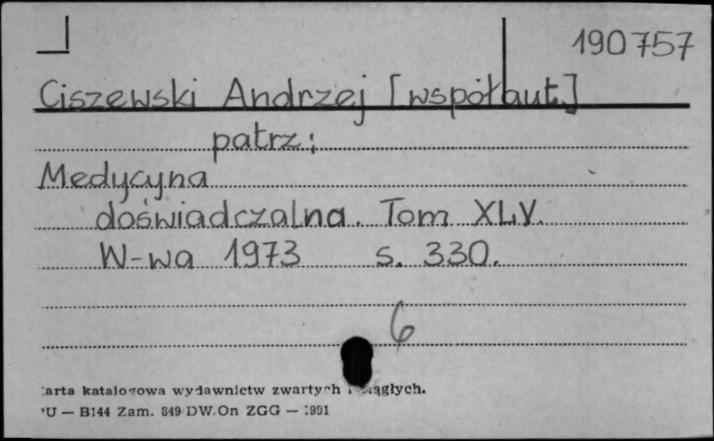 190757
Ciszewski Andrzej [współaut.]
patrz:
Medycyna
doświadczalna. Tom XLV.
W-wa 1973 s. 330.
6
arta katalogowa wydawnictw zwartych i ciągłych.
U — B144 Zam. 849 DW. On ZGG — 1991